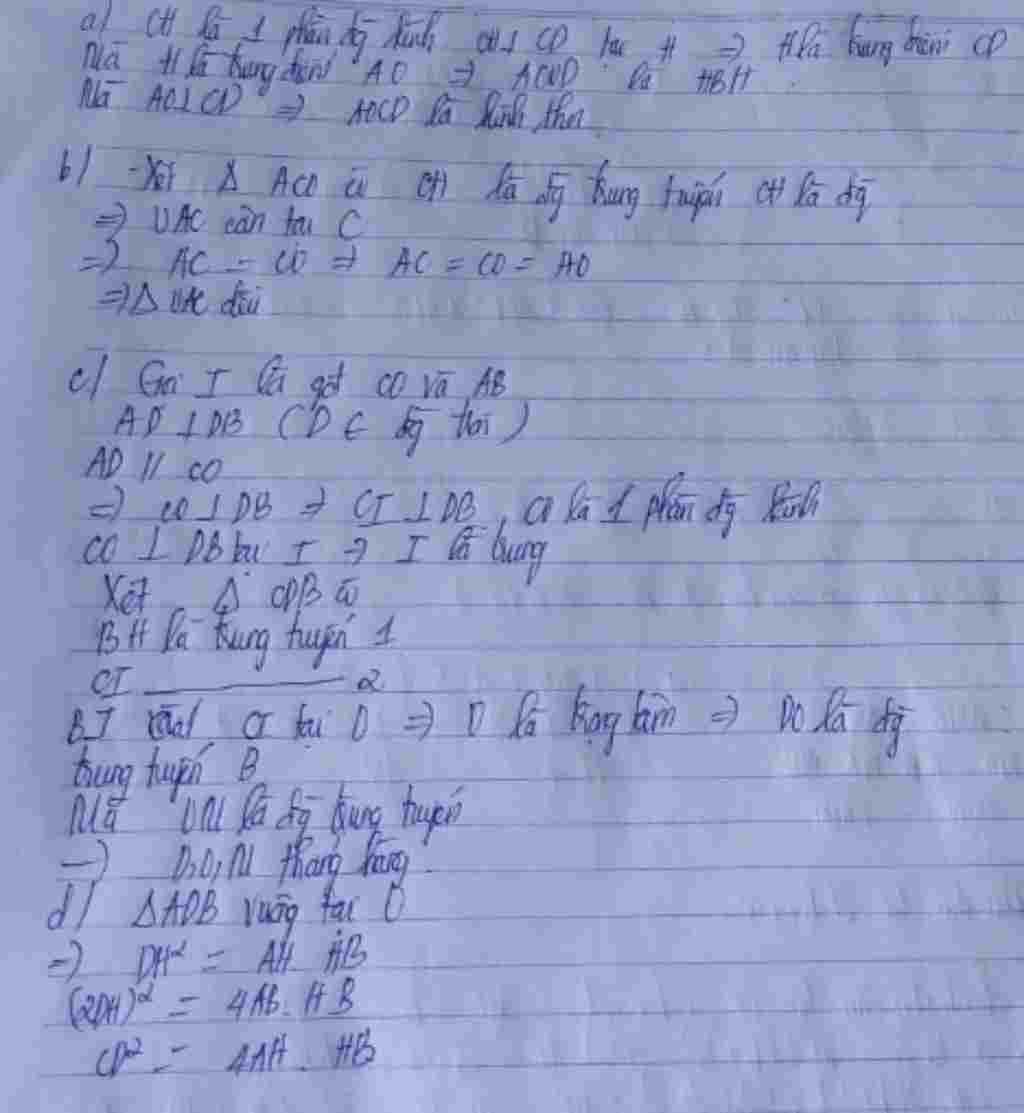 a) OH là 1 phần đg kính OH ⊥ CD tại H => H là trung điểm CD
Mà H là trung điểm AO => ACOD là HBH.
Mà AO ⊥ CD => AOCD là hình thoi
b) - Xét Δ ACO có CH là đg trung tuyến CH là đg
=> OAC cân tại C
=> AC = CO => AC = CO = AO
=> Δ OAC đều
c) Gọi I là gđ CO và AB
AD ⊥ DB (D ∈ đg tròn)
AD // CO
=> CO ⊥ DB => CI ⊥ DB, CO là 1 phần đg kính
CO ⊥ DB tại I => I là trung
Xét Δ CDB có
BH là trung tuyến 1
CI ——— 2
BI cắt CI tại O => O là trọng tâm => DO là đg
trung tuyến B
Mà OM là đg trung tuyến
=> D,O,M thẳng hàng.
d) ΔADB vuông tại D
=> DH² = AH. HB
(2DH)² = 4AB. HB
CD² = 4AH. HB